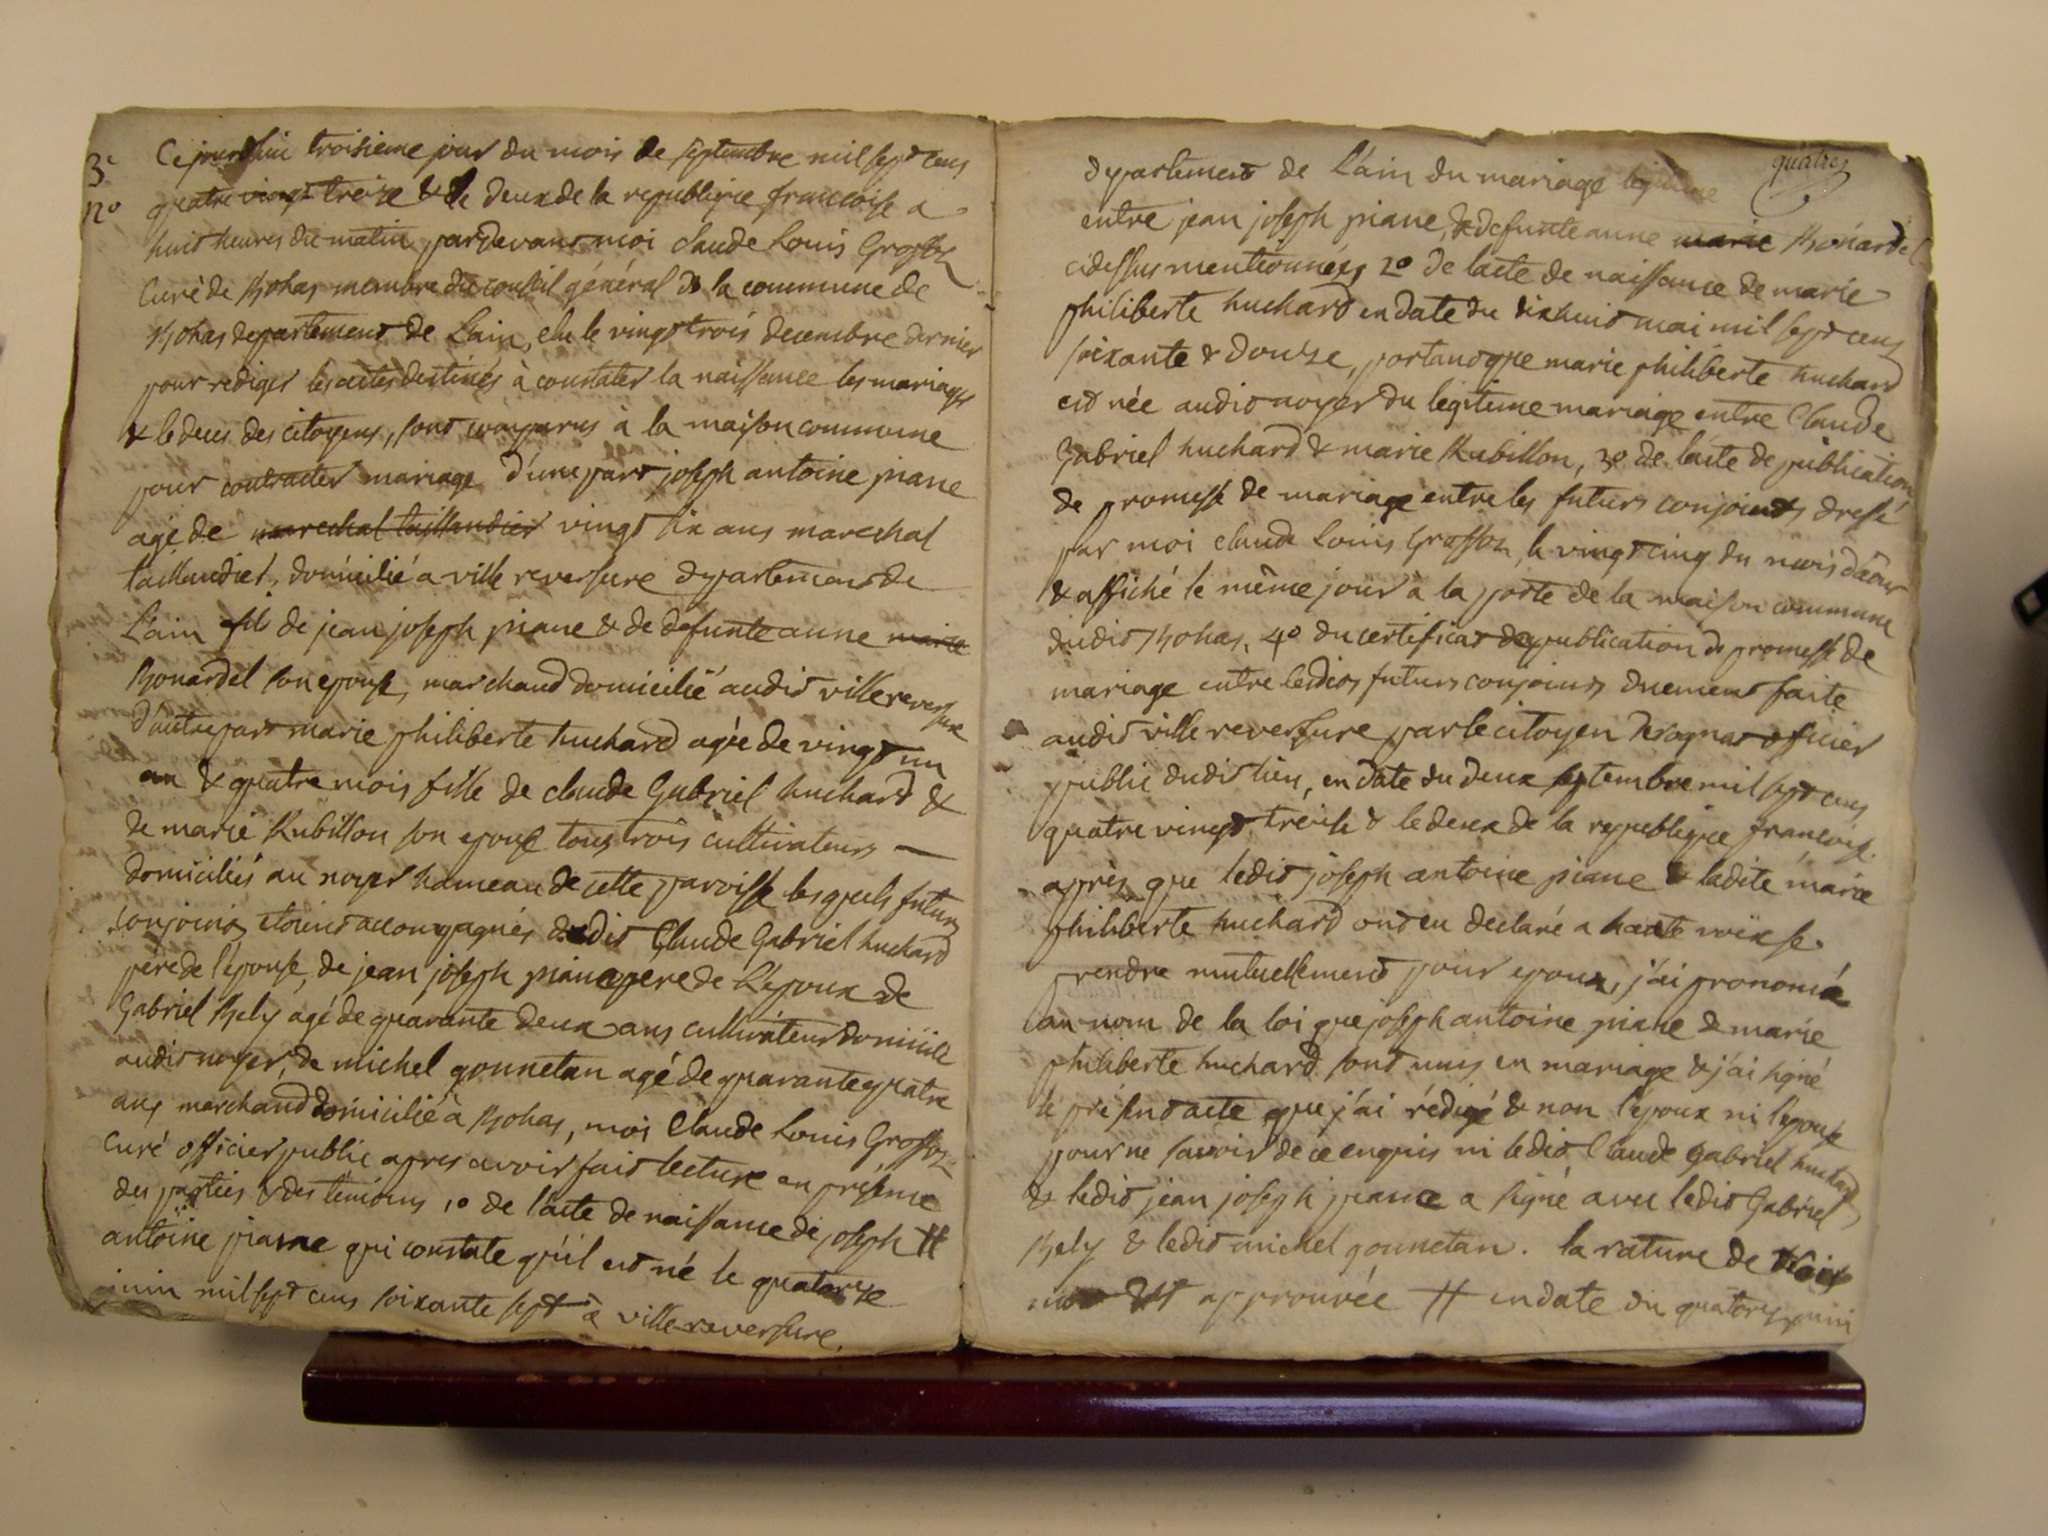 3e
no
Cejourdhui troisieme jour du mois de septembre mil sept cens
quatre vingt treize & le deux de la republique francoise a
huit heures du matin pardevant moi claude Louis Grosson
Curé de Bohas membre du conseil général de la commune de
Bohas departement de Lain, elu le vingt trois decembre dernier
pour rediger les actes destinés à constater la naissance les mariages
& le deces des citoyens, sont comparus à la maison commune
pour contracter mariage d'une part joseph antoine piane
agé de marechal taillandier vingt six ans mareschal
taillandier, domicilié a ville reversure departement de
L'ain fils de jean joseph piane & de defunte anne marie
Bonardel son epouse, marchand domicilié audit ville reversure
d'autre part marie philiberte huchard agée de vingt un
an & quatre mois fille de claude Gabriel huchard &
de marie Rubillon son epouse tous trois cultivateurs
domiciliés au noyer hameau de cette paroisse lesquels futurs
conjoins etoient accompagnés dudit Claude Gabriel huchard
pere de l'epouse, de jean joseph piane pere de L'epoux de
Gabriel Bely agé de quarante deux ans cultivateur domicilie
audit noyer, de michel gonnetan agé de quarante quatre
ans marchand domicilié à Bohas, moi Claude Louis Grosson
Curé officier public apres avoir fait lecture en presence
des parties & des temoins 1o de l'acte de naissance de joseph #
antoine piane qui constate qu'il est né le quatorze
juin mil sept cens soixante sept à ville reversure,
quatre
departement de L'ain du mariage legitime
entre jean joseph piane, & defunte anne marie Bonardel
cidessus mentionnés 2o de l'acte de naissance de marie
philiberte huchard en date du dixhuit mai mil sept cens
soixante & douze, portant que marie philiberte huchard
est née audit noyer du legitime mariage entre Claude
Gabriel huchard & marie Rubillon, 3o de l'acte de publication
de promesse de mariage entre les futurs conjoints dressé
par moi claude Louis Grosson le vingt cinq du mois d'aout
& affiché le même jour à la porte de la maison commune
dudit Bohas, 4o du certificat de publication de promesse de
mariage entre lesdits futurs conjoins duement faite
audit ville reversure par le citoyen officier
public dudit lieu, en date du deux septembre mil sept cens
quatre vingt treize & le deux de la republique francoise
après que ledit joseph antoine piane & ladite marie
philiberte huchard ont eu declaré a haute voix se
prendre mutuellement pour epoux, j'ai prononcé
au nom de la loi que joseph antoine piane & marie
philiberte huchard sont unis en mariage & j'ai signé
le present acte que j'ai rédigé & non l'epoux ni l'epouse
pour ne savoir de ce enquis ni ledit Claude Gabriel huchard
& ledit jean joseph piane a signé avec ledit Gabriel
Bely & ledit michel gonnetan. la rature de trois
mots est approuvée # en date du quatorze juin